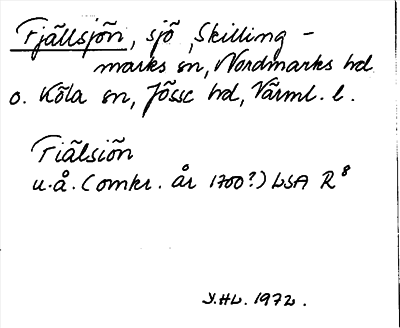 Fjällsjön, sjö, Skilling-
marks sn, Nordmarks hd
o. Köla sn, Jösse hd, Värml. l.
Fiälsiön
u.å. (omkr. år 1700?) LSA R⁸
Y.HL. 1972.